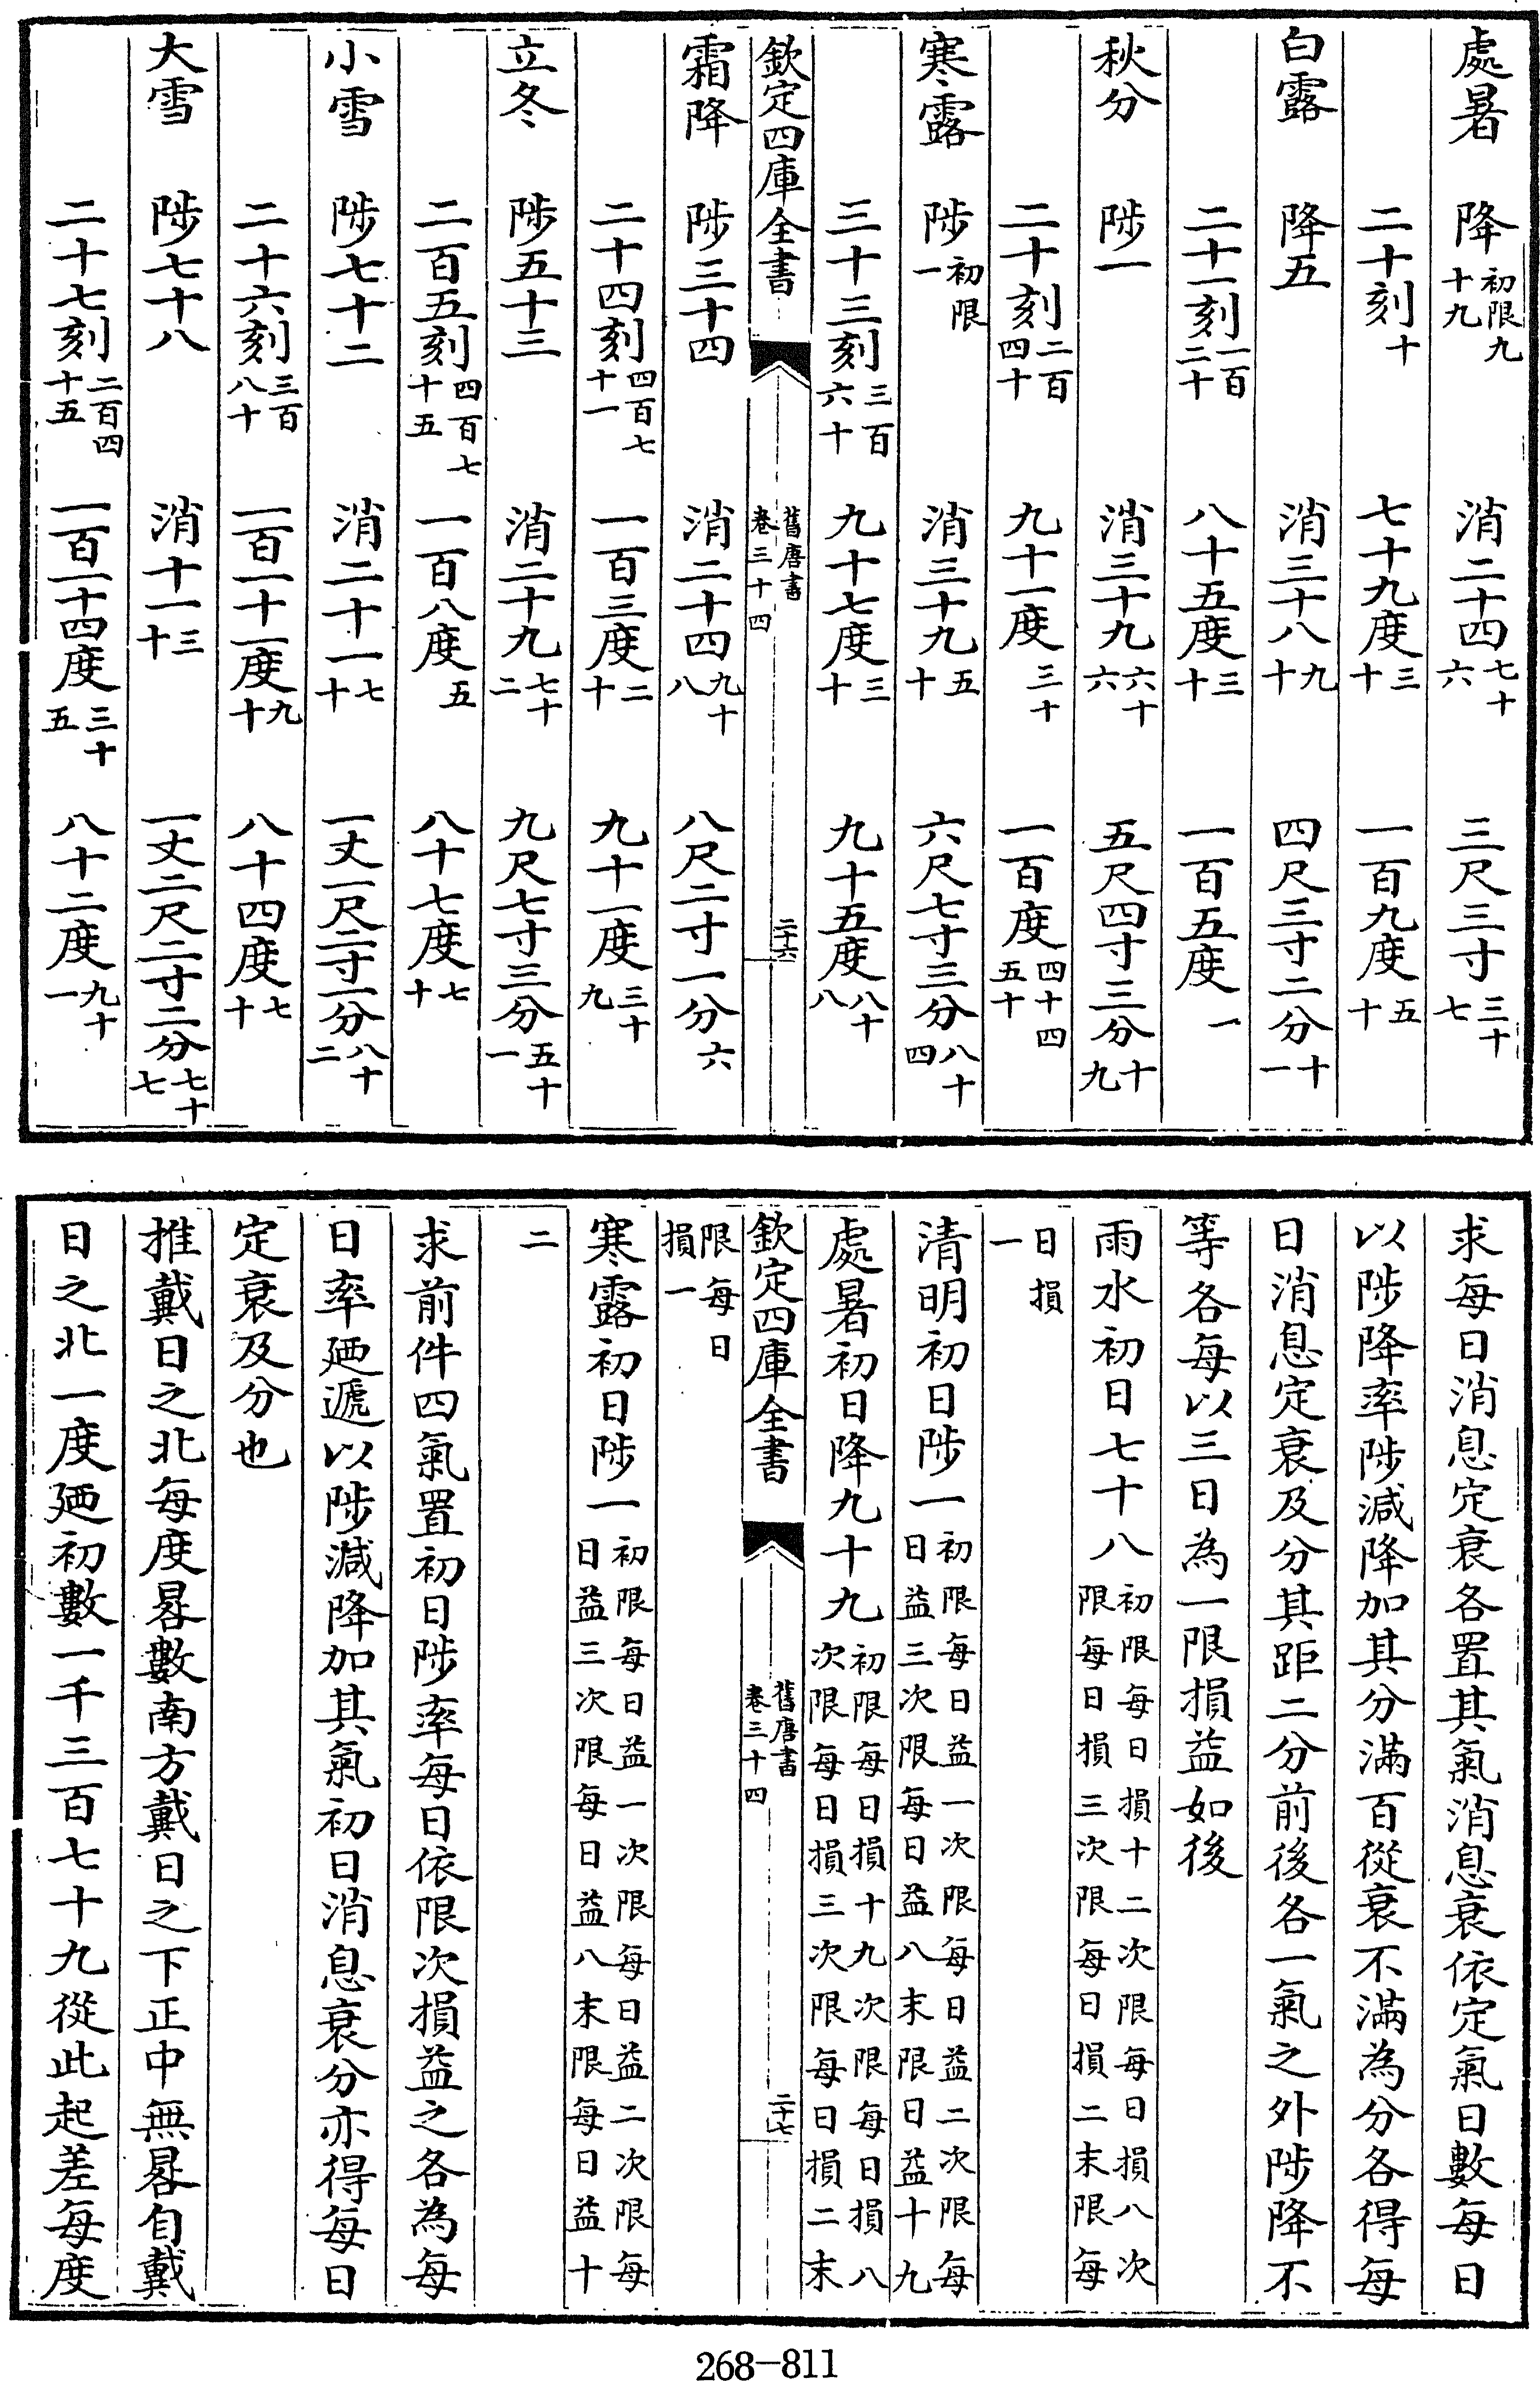 處暑　降初限九十九　消二十四七十六　三尺三寸三十七
二十刻十　七十九度三十　一百九度五十
白露　降五　消三十八九十　四尺三寸二分十一
二十一刻一百二十　八十五度三十　一百五度一
秋分　陟一　消三十九六十六　五尺四寸三分十九
二十刻二百四十　九十一度三十　一百度四十四五十
寒露　陟初限一　消三十九五十　六尺七寸三分八十四
三十三刻三百六十　九十七度三十　九十五度八十八
欽定四庫全書　舊唐書卷三十四　二十六
霜降　陟三十四　消二十四九十八　八尺二寸一分六
二十四刻四百七十一　一百三度二十　九十一度三十九
立冬　陟五十三　消二十九七十二　九尺七寸三分五十一
二百五刻四百七十五　一百八度五　八十七度七十
小雪　陟七十二　消二十一七十　一丈一尺二寸一分八十二
二十六刻三百八十　一百一十一度九十　八十四度七十
大雪　陟七十八　消十一三十　一丈二尺二寸二分七十七
二十七刻二百四十五　一百一十四度三十五　八十二度九十一
求每日消息定衰各置其氣消息衰依定氣日數每日
以陟降率陟減降加其分滿百從衰不滿為分各得每
日消息定衰及分其距二分前後各一氣之外陟降不
等各每以三日為一限損益如後
雨水初日七十八初限每日損十二次限每日損八次限每日損三次限每日損二末限每
日損一
清明初日陟一初限每日益一次限每日益二次限每日益三次限每日益八末限日益十九
處暑初日降九十九初限每日損十九次限每日損八次限每日損三次限每日損二末
欽定四庫全書　舊唐書卷三十四　二十七
限每日損一
寒露初日陟一初限每日益一次限每日益二次限每日益三次限每日益八末限每日益十
二
求前件四氣置初日陟率每日依限次損益之各為每
日率廼遞以陟減降加其氣初日消息衰分亦得每日
定衰及分也
推戴日之北每度晷數南方戴日之下正中無晷自戴
日之北一度廼初數一千三百七十九從此起差每度
268-811